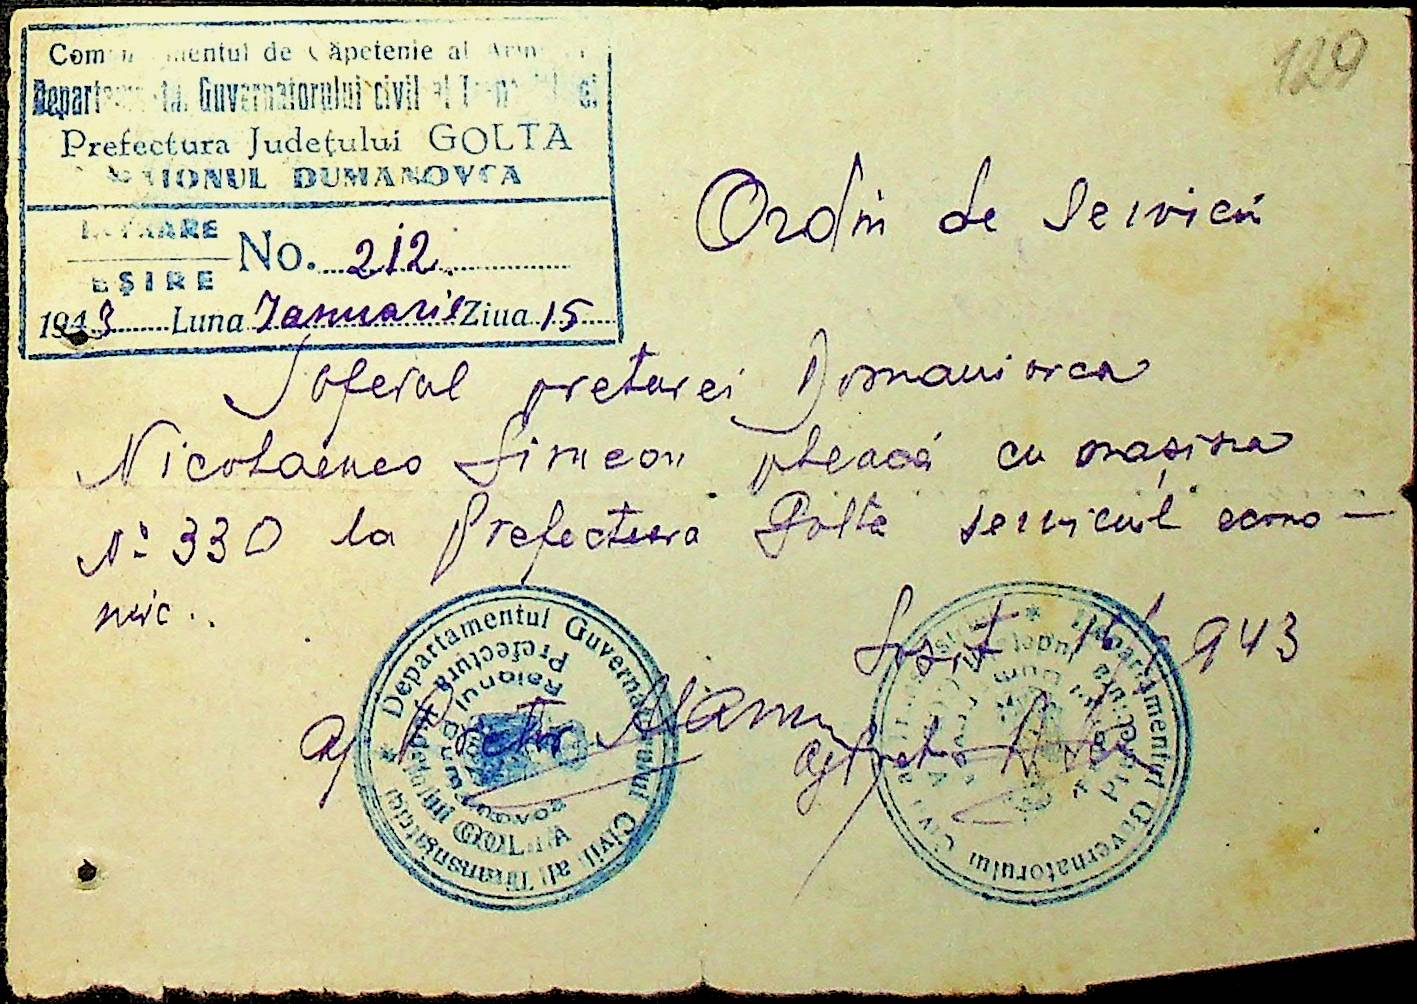 129
Comandamentul de Căpetenie al Armatei
Departamentul Guvernatorului civil al Transnistriei
Prefectura Județului GOLTA
RAIONUL DUMANOVCA
INTRARE
EȘIRE
No. 212
1943 Luna Ianuarie Ziua 15
Ordin de serviciu
Șoferul preturei Domaniovca
Nicolaenco Simeon pleacă cu mașina
No 330 la Prefectura Golta serviciul econo-
mic.
Sosit 943
aj Pretor
aj Pretor
Departamentul Guvernatorului Civil al Transnistriei
Prefectura Județului GOLTA
Raionul
Departamentul Guvernatorului Civil al